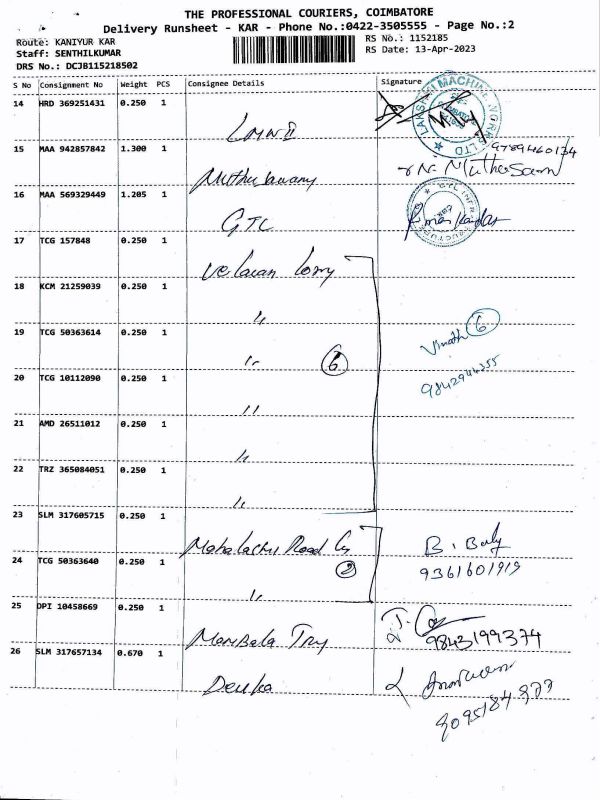 THE PROFESSIONAL COURIERS, COIMBATORE
Delivery Runsheet - KAR - Phone No.:0422-3505555 - Page No.:2
Route: KANIYUR KAR
RS No.: 1152185
Staff: SENTHILKUMAR
RS Date: 13-Apr-2023
DRS No.: DCJB115218502
S No Consignment No Weight PCS Consignee Details Signature
14 HRD 369251431 0.250 1
LMW II
15 MAA 942857842 1.300 1
9789460134
Muthuswamy
16 MAA 569329449 1.205 1
GTC
17 TCG 157848 0.250 1
Velavan Lorry
18 KCM 21259039 0.250 1
"
19 TCG 50363614 0.250 1
" 6
Vinoth 6
9842944355
20 TCG 10112090 0.250 1
"
21 AMD 26511012 0.250 1
"
22 TRZ 365084051 0.250 1
"
23 SLM 317605715 0.250 1
Mahalacmi Road
B.
24 TCG 50363640 0.250 1
2
9361601919
"
25 DPI 10458669 0.250 1
9843199374
26 SLM 317657134 0.670 1